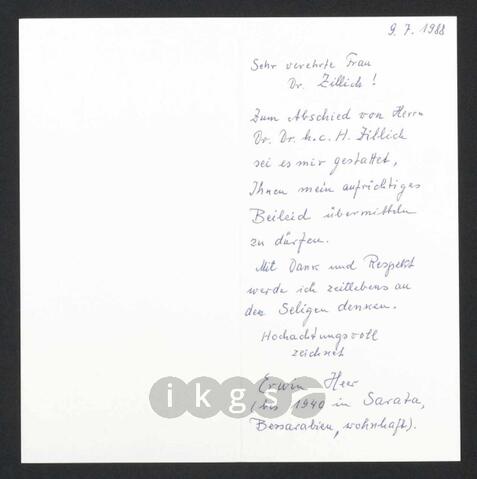 9. 7. 1988
Sehr verehrte Frau
Dr. Zillich!
Zum Abschied von Herrn
Dr. Dr. h.c. H. Zillich
sei es mir gestattet,
Ihnen mein aufrichtiges
Beileid übermitteln
zu dürfen.
Mit Dank und Respekt
werde ich zeitlebens an
den Seligen denken.
Hochachtungsvoll
zeichnet
Erwin Heer
(bis 1940 in Sarata,
Bessarabien, wohnhaft).
ikgs